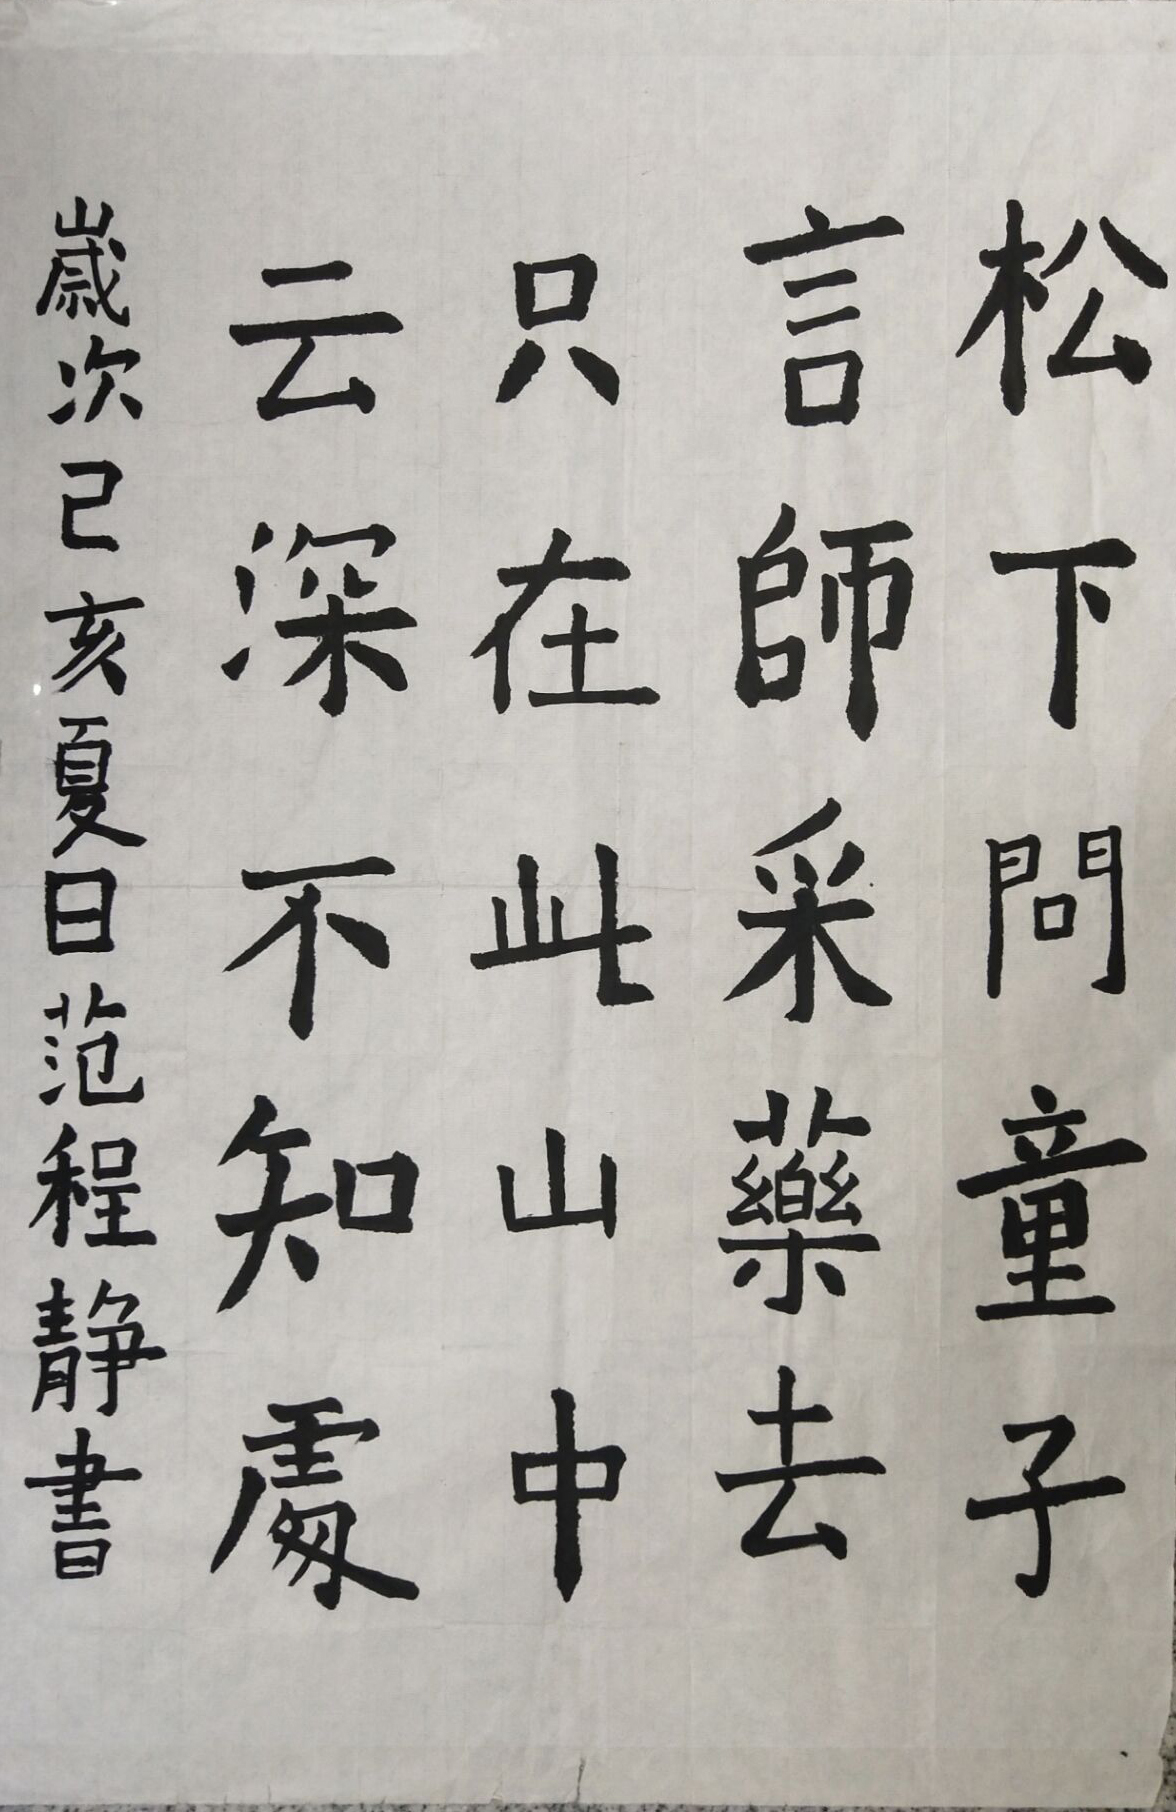 松下問童子
言師采藥去
只在此山中
云深不知處
歲次己亥夏日范程静書